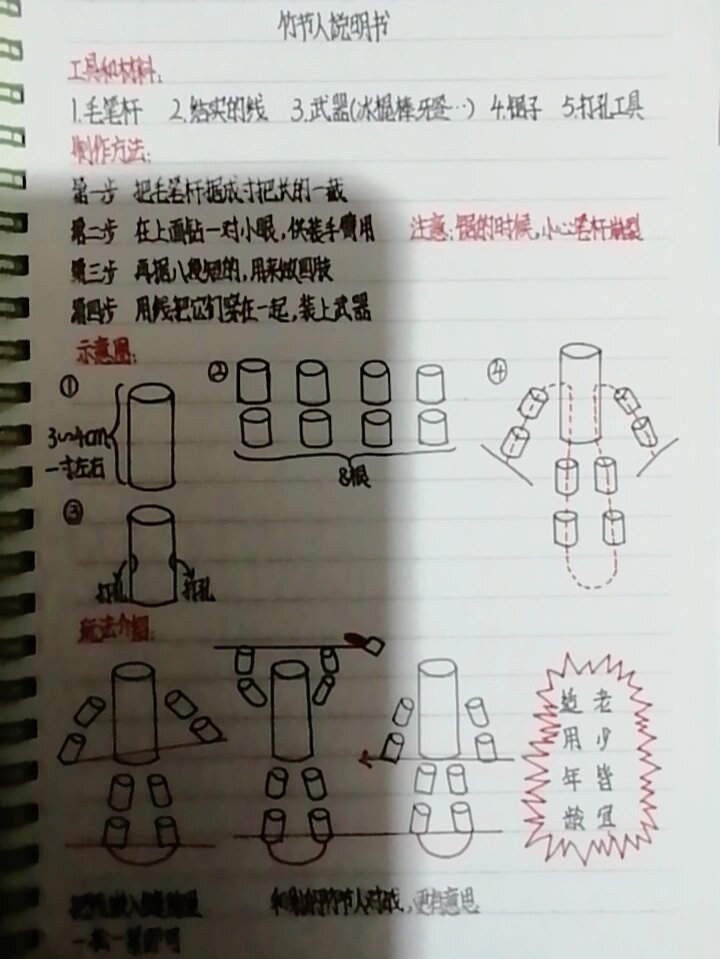 竹节人说明书
工具和材料:
1.毛笔杆 2.结实的线 3.武器(冰棍棒、牙签…) 4.锯子 5.打孔工具
制作方法:
第一步 把毛笔杆锯成寸把长的一截
第二步 在上面钻一对小眼,供装手臂用 注意:锯的时候,小心笔杆崩裂
第三步 再锯八段短的,用来做四肢
第四步 用线把它们穿在一起,装上武器
示意图:
① 3~4cm 一寸左右
② 8根
④
③ 打孔 打孔
玩法介绍:
适用年龄
老少皆宜
把 嵌入
和别的竹节人对战,更有意思
一松一紧即可